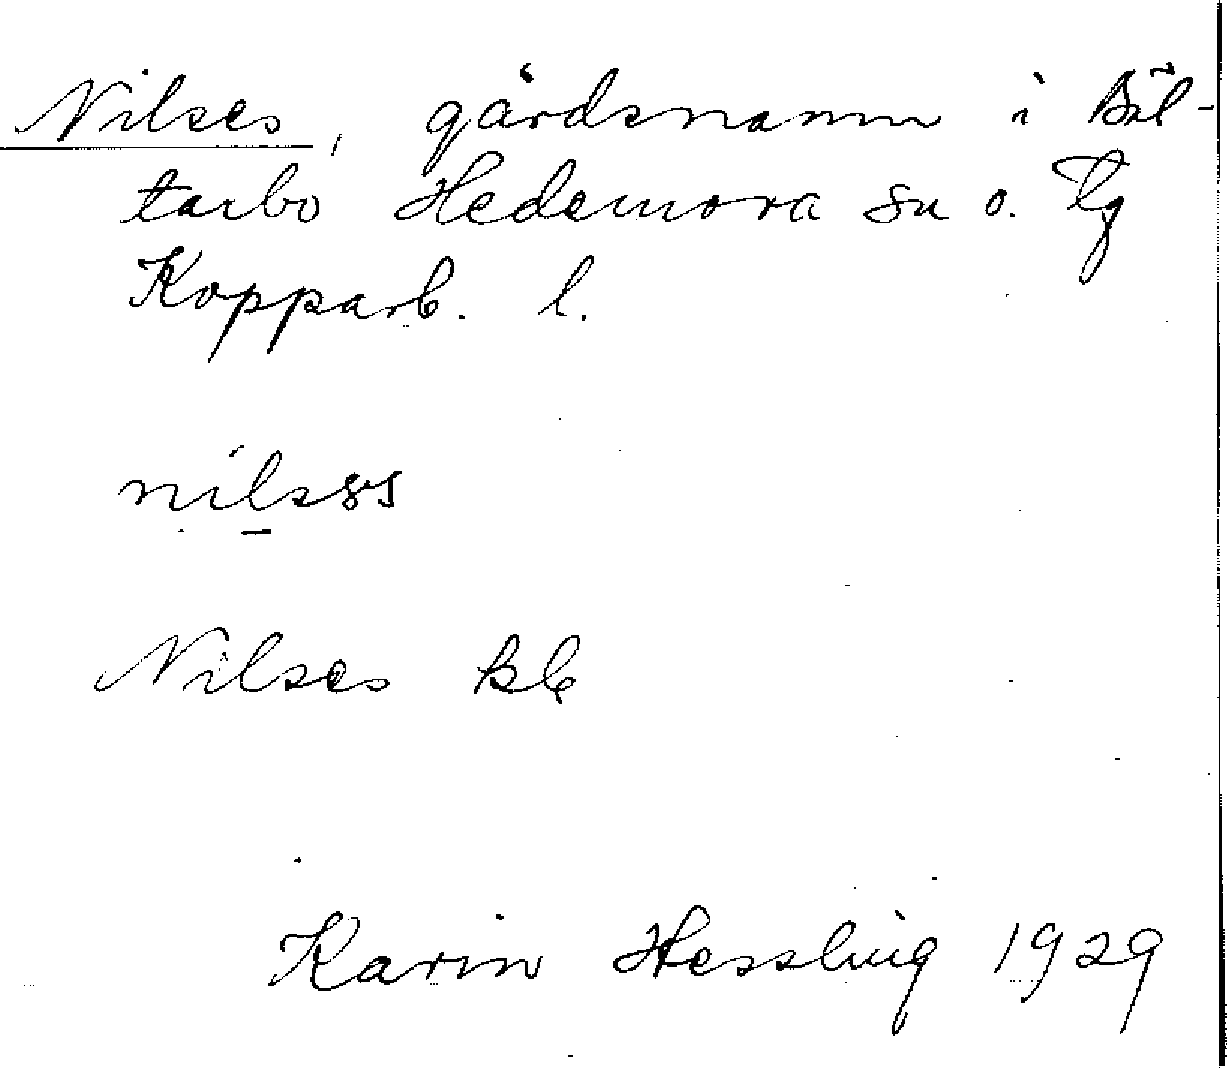 Nilses, gårdsnamn i Bäl-
tarbo Hedemora sn o. tg
Kopparb. l.
nilsəs
Nilses kb
Karin Hessling 1929